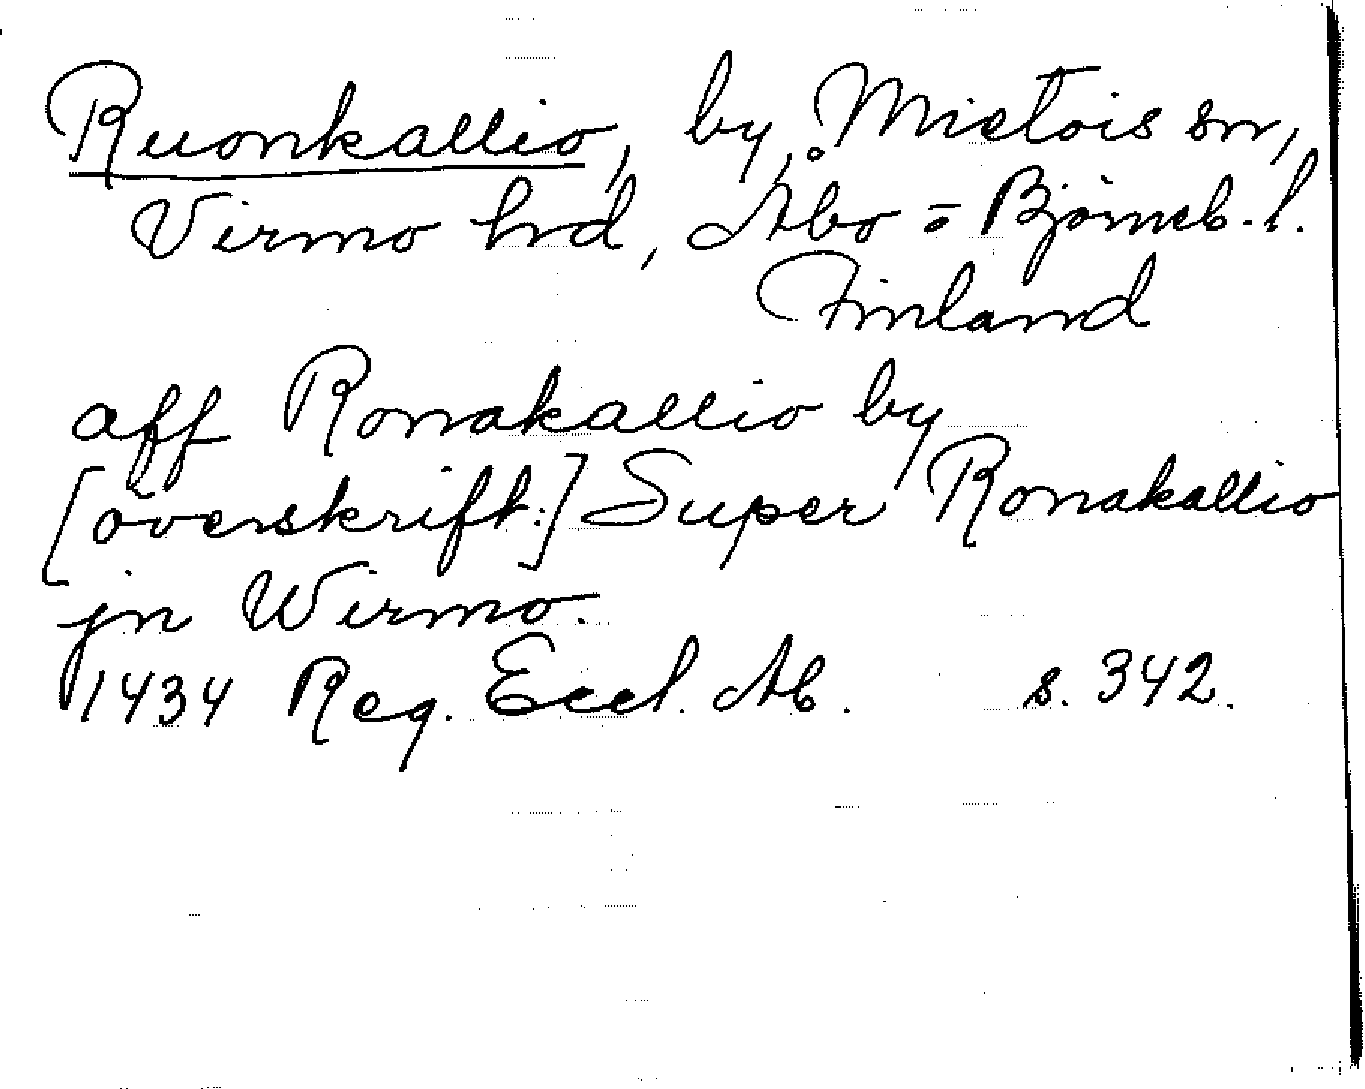 Ruonkallio, by, Mietois sn,
Virmo hrd, Åbo = Björneb. l.
Finland
aff Ronakallio by
[överskrift:] Super Ronakallio
jn Wirmo.
1434 Reg. Eccl. Ab. s. 342.